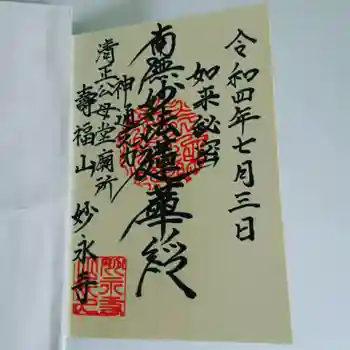 令和四年七月三日
如来秘密
南無妙法蓮華経
神通之力
清正公母堂廟所
壽福山 妙永寺